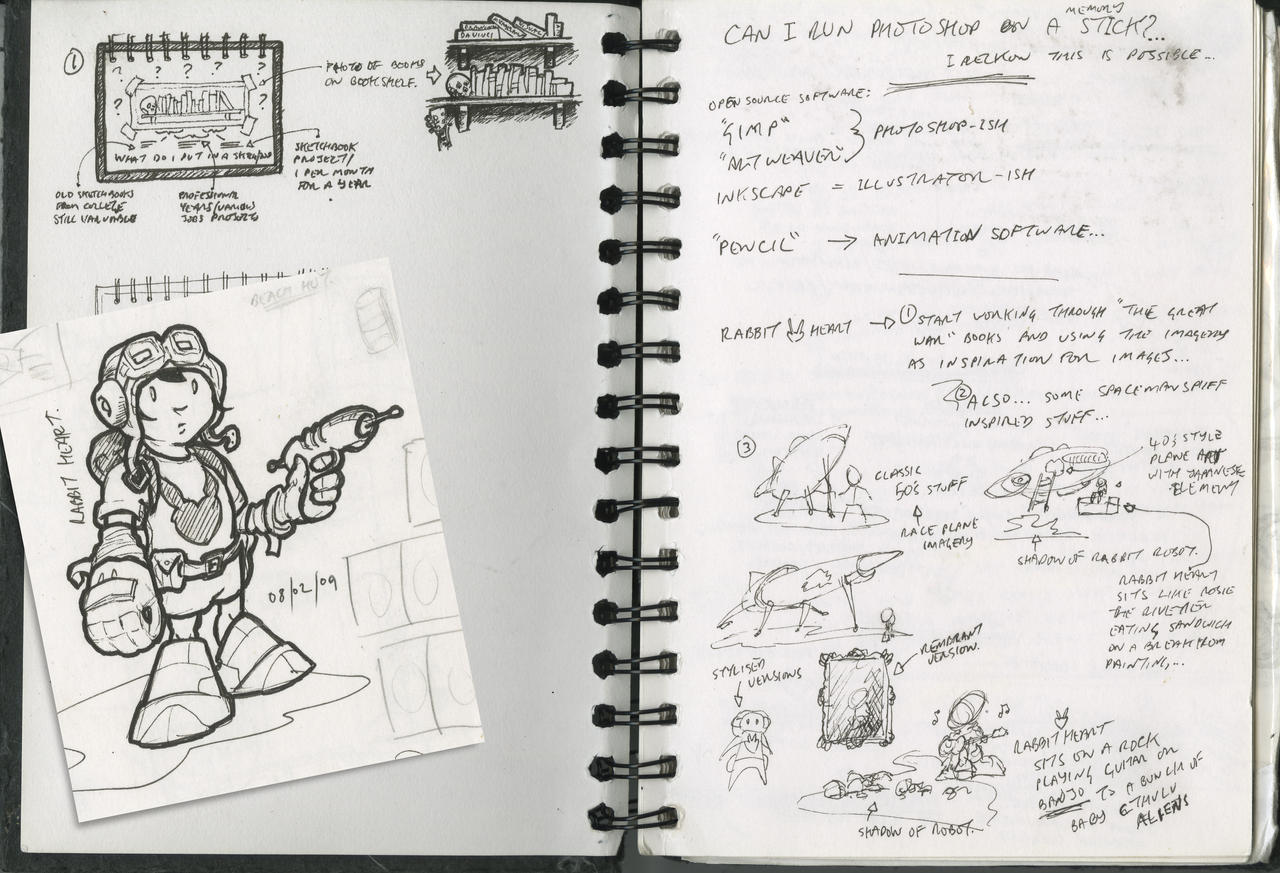 ①
PHOTO OF BOOKS
ON BOOKSHELF.
DA VINCI
? ? ? ? ? ? ? ?
WHAT DO I PUT IN A SKETCHBOOK
SKETCHBOOK
PROJECT/
1 PER MONTH
FOR A YEAR
OLD SKETCHBOOKS
FROM COLLEGE
STILL VALUABLE
PROFESSIONAL
YEARS/VARIOUS
JOBS PROJECTS
BEACH HUT.
RABBIT HEART.
08/02/09
MEMORY
CAN I RUN PHOTOSHOP ON A STICK?...
I RECKON THIS IS POSSIBLE...
OPEN SOURCE SOFTWARE:
"GIMP"
"ARTWEAVER"
PHOTOSHOP-ISH
INKSCAPE = ILLUSTRATOR-ISH
"PENCIL" → ANIMATION SOFTWARE...
RABBIT HEART → ① START WORKING THROUGH "THE GREAT
WAR" BOOKS AND USING THE IMAGERY
AS INSPIRATION FOR IMAGES...
② ALSO... SOME SPACEMAN SPIFF
INSPIRED STUFF...
③
CLASSIC
50'S STUFF
RACE PLANE
IMAGERY
40'S STYLE
PLANE ART
WITH JAPANESE
ELEMENT
SHADOW OF RABBIT ROBOT.
RABBIT HEART
SITS LIKE ROSIE
THE RIVETER
EATING SANDWICH
ON A BREAK FROM
PAINTING...
STYLISED
VERSIONS
REMBRANT
VERSION.
RABBIT HEART
SITS ON A ROCK
PLAYING GUITAR OR
BANJO TO A BUNCH OF
BABY CTHULU
ALIENS
SHADOW OF ROBOT.